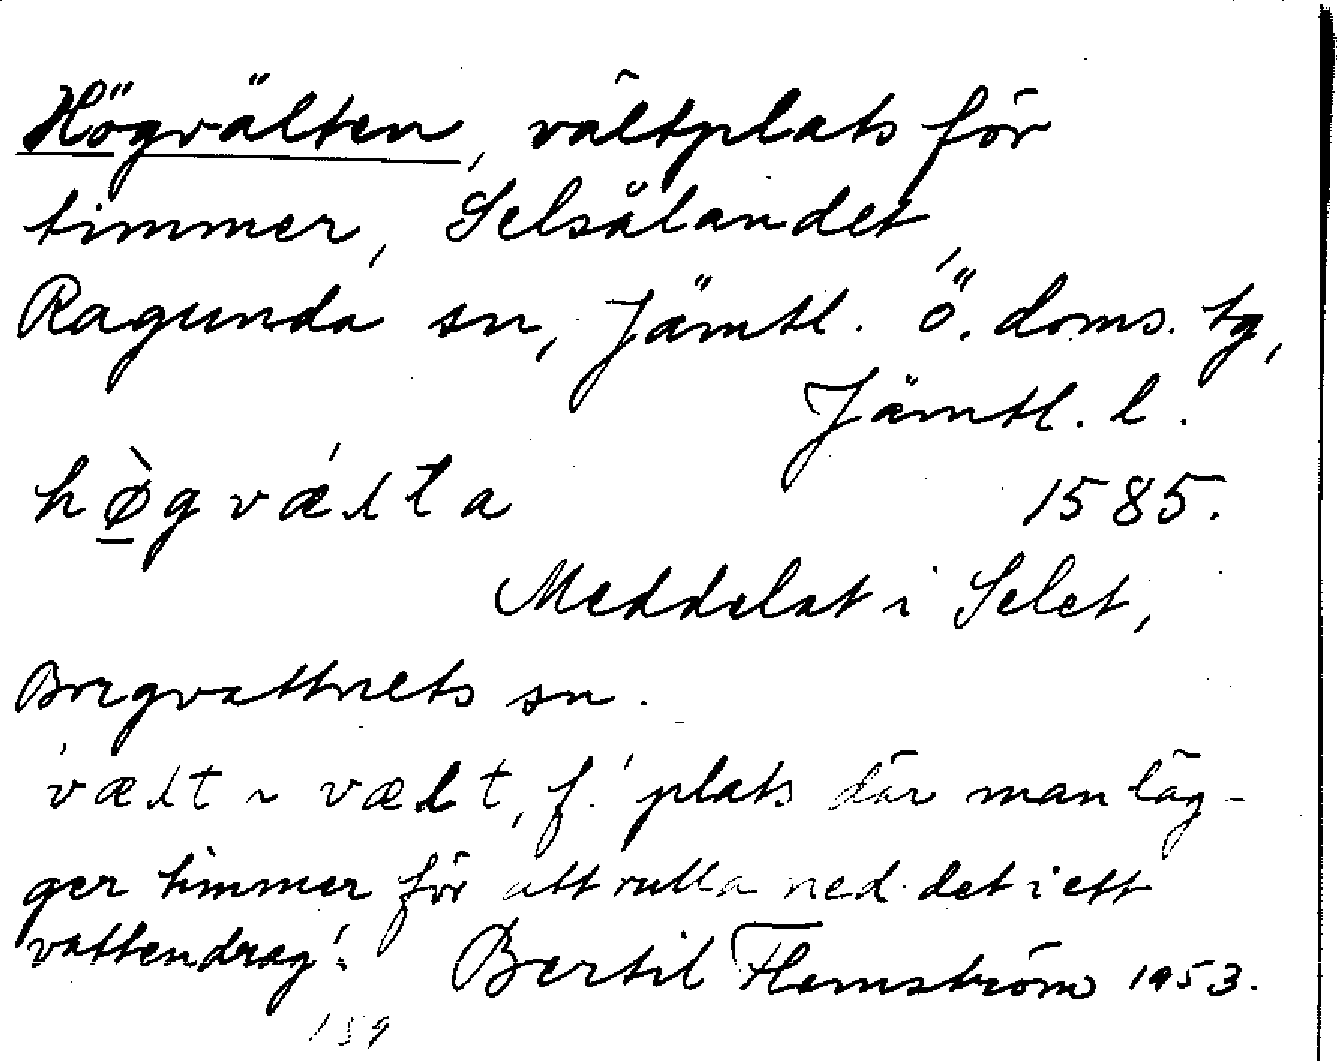 Högvälten, vältplats för
timmer, Selsålandet,
Ragunda sn, Jämtl. ö. doms. tg,
Jämtl. l.
hø̀gvǽlta 1585.
Meddelat i Selet,
Borgvattnets sn.
vælt ~ vælt, f. 'plats där man läg-
ger timmer för att rulla ned det i ett
vattendrag'. Bertil Flemström 1953.
159